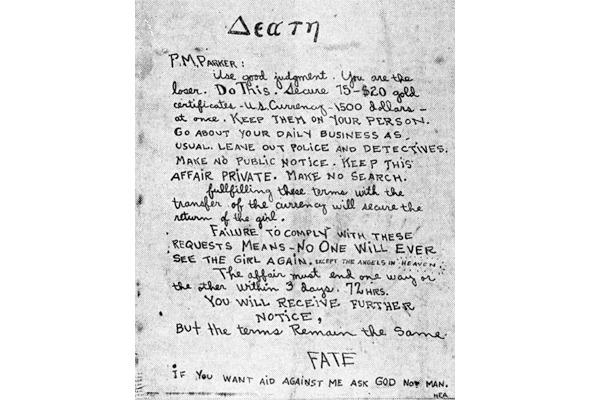 Δεατη
P.M. PARKER:
Use good judgment. You are the
loser. Do This. Secure 75-$20 gold
certificates - U.S. Currency - 1500 dollars -
at once. KEEP THEM ON YOUR PERSON.
GO ABOUT YOUR DAILY BUSINESS AS
USUAL. LEAVE OUT POLICE AND DETECTIVES.
MAKE NO PUBLIC NOTICE. KEEP THIS
AFFAIR PRIVATE. MAKE NO SEARCH.
fullfilling these terms with the
transfer of the currency will secure the
return of the girl.
FAILURE TO COMPLY WITH THESE
REQUESTS MEANS - NO ONE WILL EVER
SEE THE GIRL AGAIN. EXCEPT THE ANGELS IN HEAVEN.
The affair must end one way or
the other within 3 days. 72 HRS.
YOU WILL RECEIVE FURTHER
NOTICE,
But the terms Remain the Same.
FATE
IF YOU WANT AID AGAINST ME ASK GOD NOT MAN.
NEA